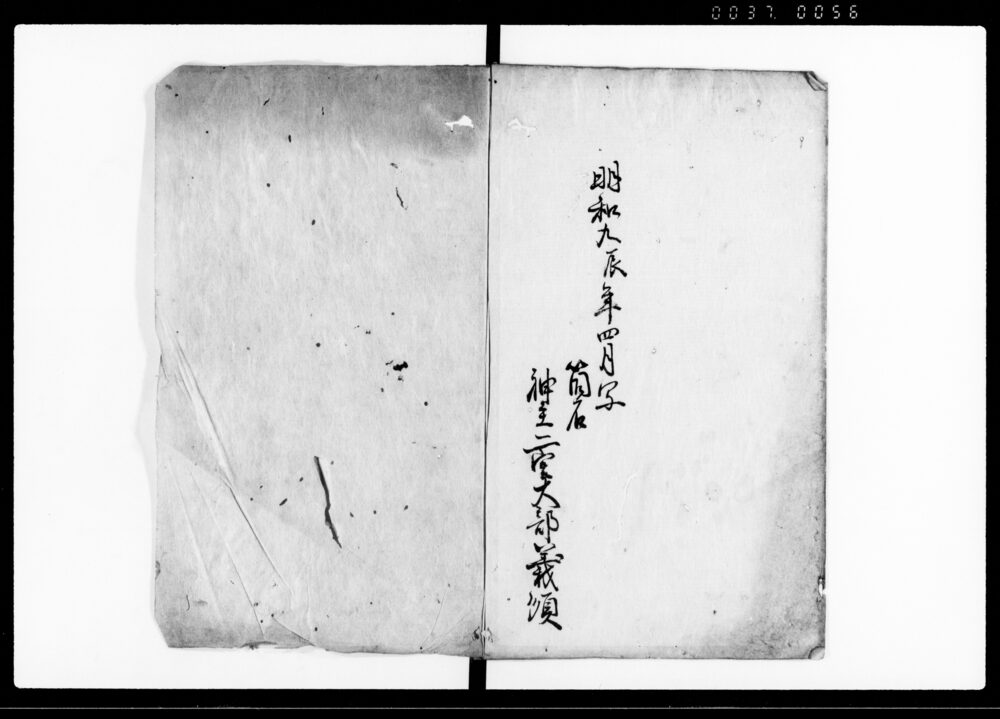 0037 0056
明和九辰年四月写
筒石
神主二宮大部義頌